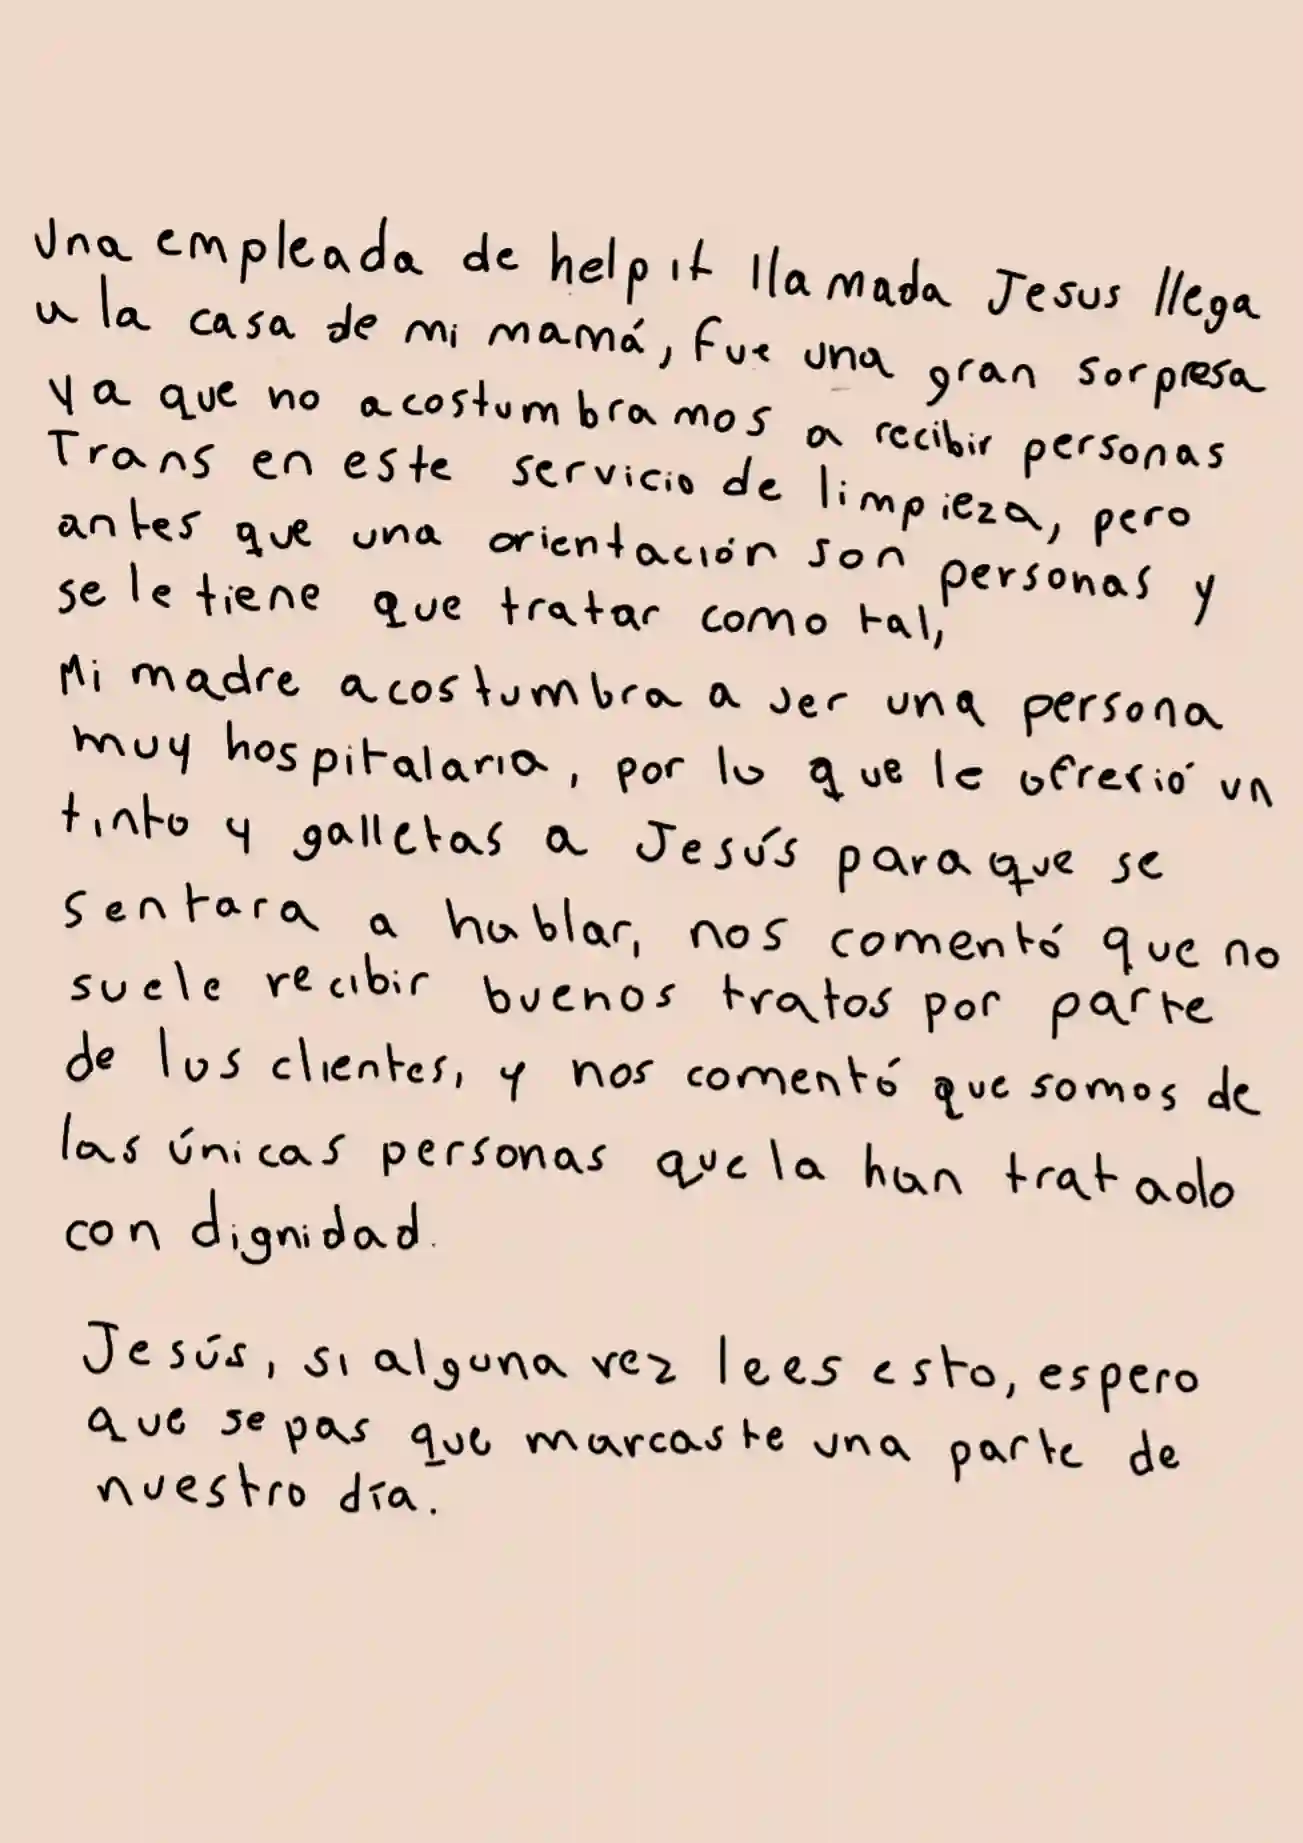 Una empleada de help it llamada Jesus llega
a la casa de mi mamá, fue una gran sorpresa
ya que no acostumbramos a recibir personas
Trans en este servicio de limpieza, pero
antes que una orientación son personas y
se le tiene que tratar como tal,
Mi madre acostumbra a ser una persona
muy hospitalaria, por lo que le ofreció un
tinto y galletas a Jesús para que se
sentara a hablar, nos comentó que no
suele recibir buenos tratos por parte
de los clientes, y nos comentó que somos de
las únicas personas que la han tratado
con dignidad.
Jesús, si alguna vez lees esto, espero
que sepas que marcaste una parte de
nuestro día.